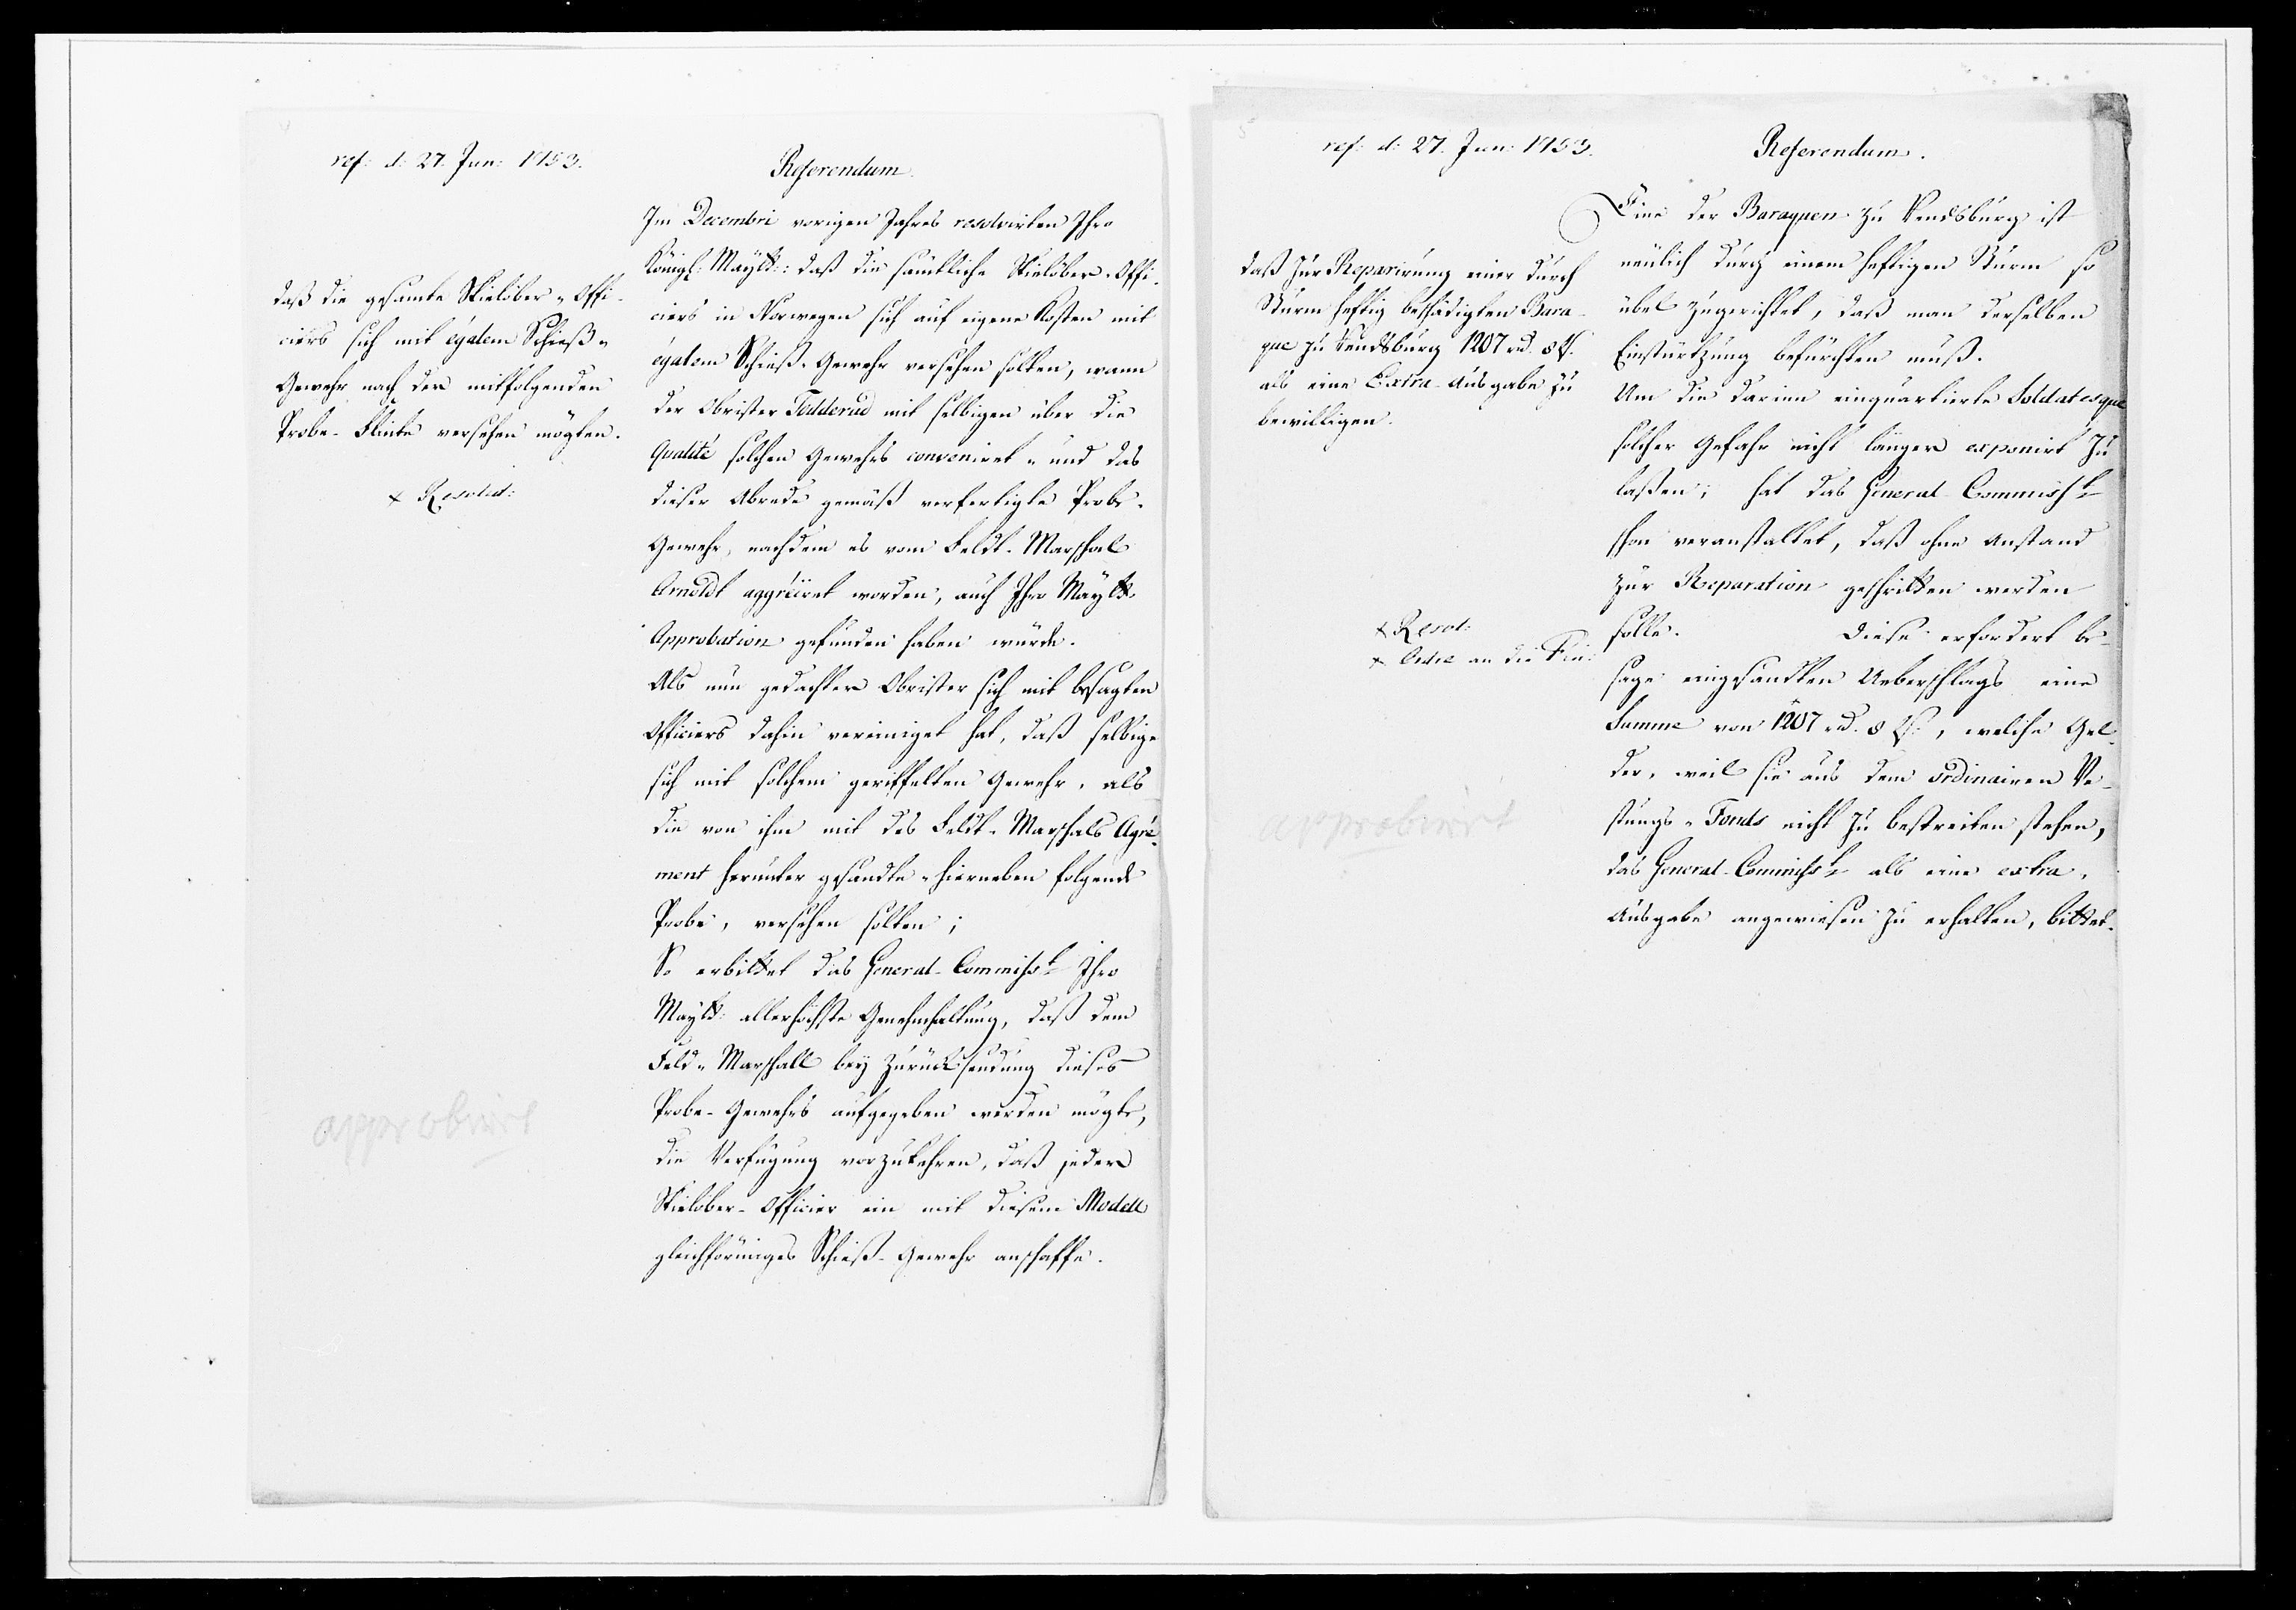 ref: d: 27. Jun: 1753.
Referendum.
daß die gesamte Skielöber-Offi-
ciers sich mit égalem Schieß-
Gewehr nach der mitfolgenden
Probe-Flinte versehen mögten.
× Resolut:
approbirt
Im Decembri vorigen Jahres resolvirten Ihro
Königl: Maytt: daß die sämtliche Skielöber-Offi-
ciers in Norwegen sich auf eigene Kosten mit
égalem Schieß-Gewehr versehen solten, wann
der Obrister mit selbigen über die
Qualité solchen Gewehrs conveniret und das
dieser Abrede gemäß verfertigte Probe-
Gewehr, nachdem es vom Feldt-Marschal
Arnoldt aggréiret worden, auch Ihro Maytt:
Approbation gefunden haben würde.
Als nun gedachter Obrister sich mit besagten
Officiers dahin vereiniget hat, daß selbige
sich mit solchem geriffelten Gewehr, als
die von ihm mit des Feldt-Marschals Agré-
ment herunter gesandte hierneben folgende
Probe, versehen solten;
So erbittet das General-Commisst Ihro
Maytt: allerhöchste Genehmhaltung, daß dem
Feld-Marschall bey Zurücksendung dieses
Probe-Gewehrs aufgegeben werden mögte,
die Verfügung vorzukehren, daß jeder
Skielöber-Officier ein mit diesem Modell
gleichförmiges Schieß-Gewehr anschaffe.
ref: d: 27. Jun: 1753.
Referendum.
daß zur Reparirung einer durch
Sturm heftig beschädigten Bara-
que zu Rendsburg 1207 rd. 8 ß.
als eine Extra-Ausgabe zu
bewilligen.
× Resol:
× Ordre an die Fin:
approbirt
Eine der Baraquen zu Rendsburg ist
neulich durch einem heftigen Sturm so
übel zugerichtet, daß man derselben
Einstürtzung befürchten muß.
Um die darinn einquartierte Soldatesque
solcher Gefahr nicht länger exponirt zu
laßen; hat das General-Commisst
schon veranstaltet, daß ohne Anstand
zur Reparation geschritten werden
solle. Diese erfordert be-
sage eingesandten Ueberschlags eine
Summe von 1207 rd. 8 ß., welche Gel-
der, weil sie aus dem ordinairen Ve-
stungs-Fonds nicht zu bestreiten stehen,
das General-Commisst als eine extra-
Ausgabe angewiesen zu erhalten, bittet.